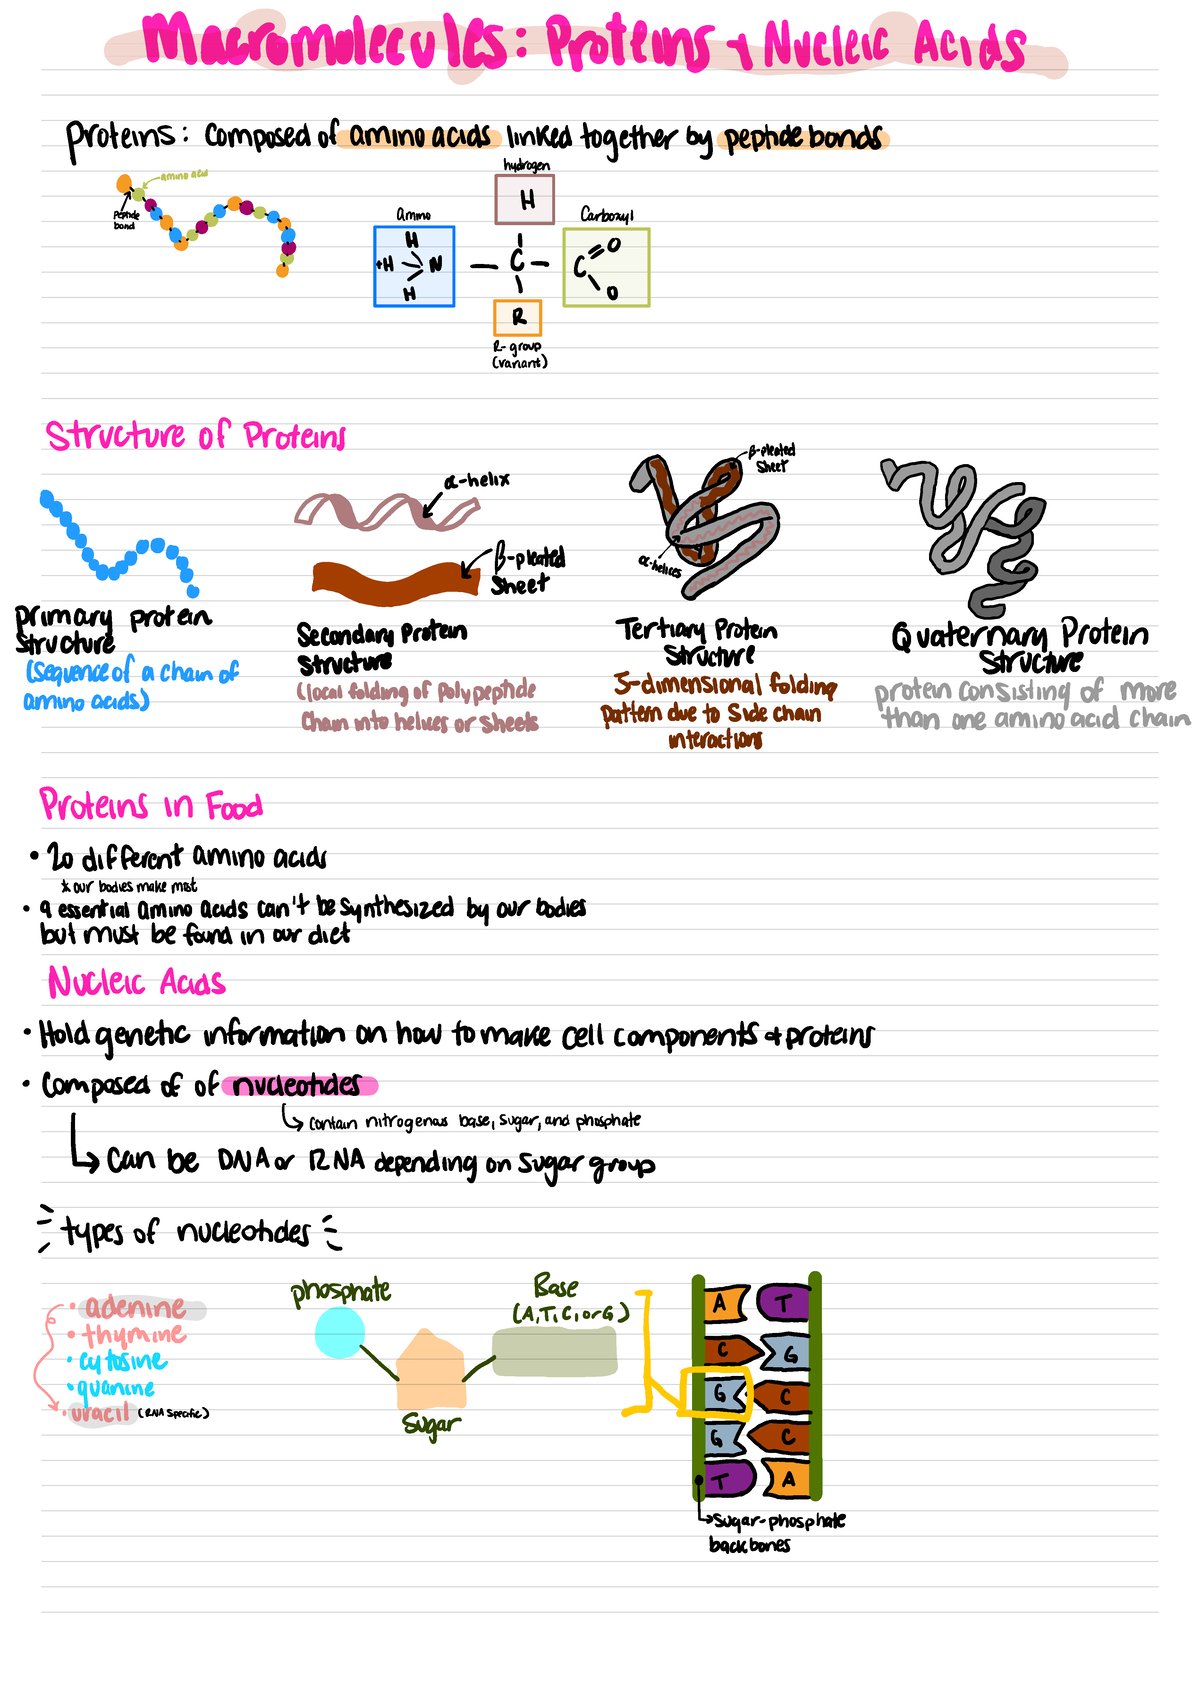 Macromolecules: Proteins + Nucleic Acids
Proteins: composed of amino acids linked together by peptide bonds
amino acid
Peptide
bond
hydrogen
H
Amino
H
+H N
H
C
Carboxyl
O
C
O
R
R-group
(variant)
Structure of Proteins
α-helix
β-pleated
Sheet
β-pleated
Sheet
α-helices
primary protein
Structure
(sequence of a chain of
amino acids)
Secondary Protein
Structure
(local folding of polypeptide
chain into helices or sheets
Tertiary Protein
Structure
3-dimensional folding
pattern due to side chain
interactions
Quaternary Protein
Structure
protein consisting of more
than one amino acid chain
Proteins in Food
• 20 different amino acids
* our bodies make most
• 9 essential amino acids can't be synthesized by our bodies
but must be found in our diet
Nucleic Acids
• Hold genetic information on how to make cell components + proteins
• Composed of of nucleotides
contain nitrogenous base, sugar, and phosphate
Can be DNA or RNA depending on sugar group
types of nucleotides
• adenine
• thymine
• cytosine
• guanine
• uracil (RNA specific)
phosphate
Sugar
Base
(A, T, C, or G)
A T
C G
G C
G C
T A
Sugar-phosphate
backbones